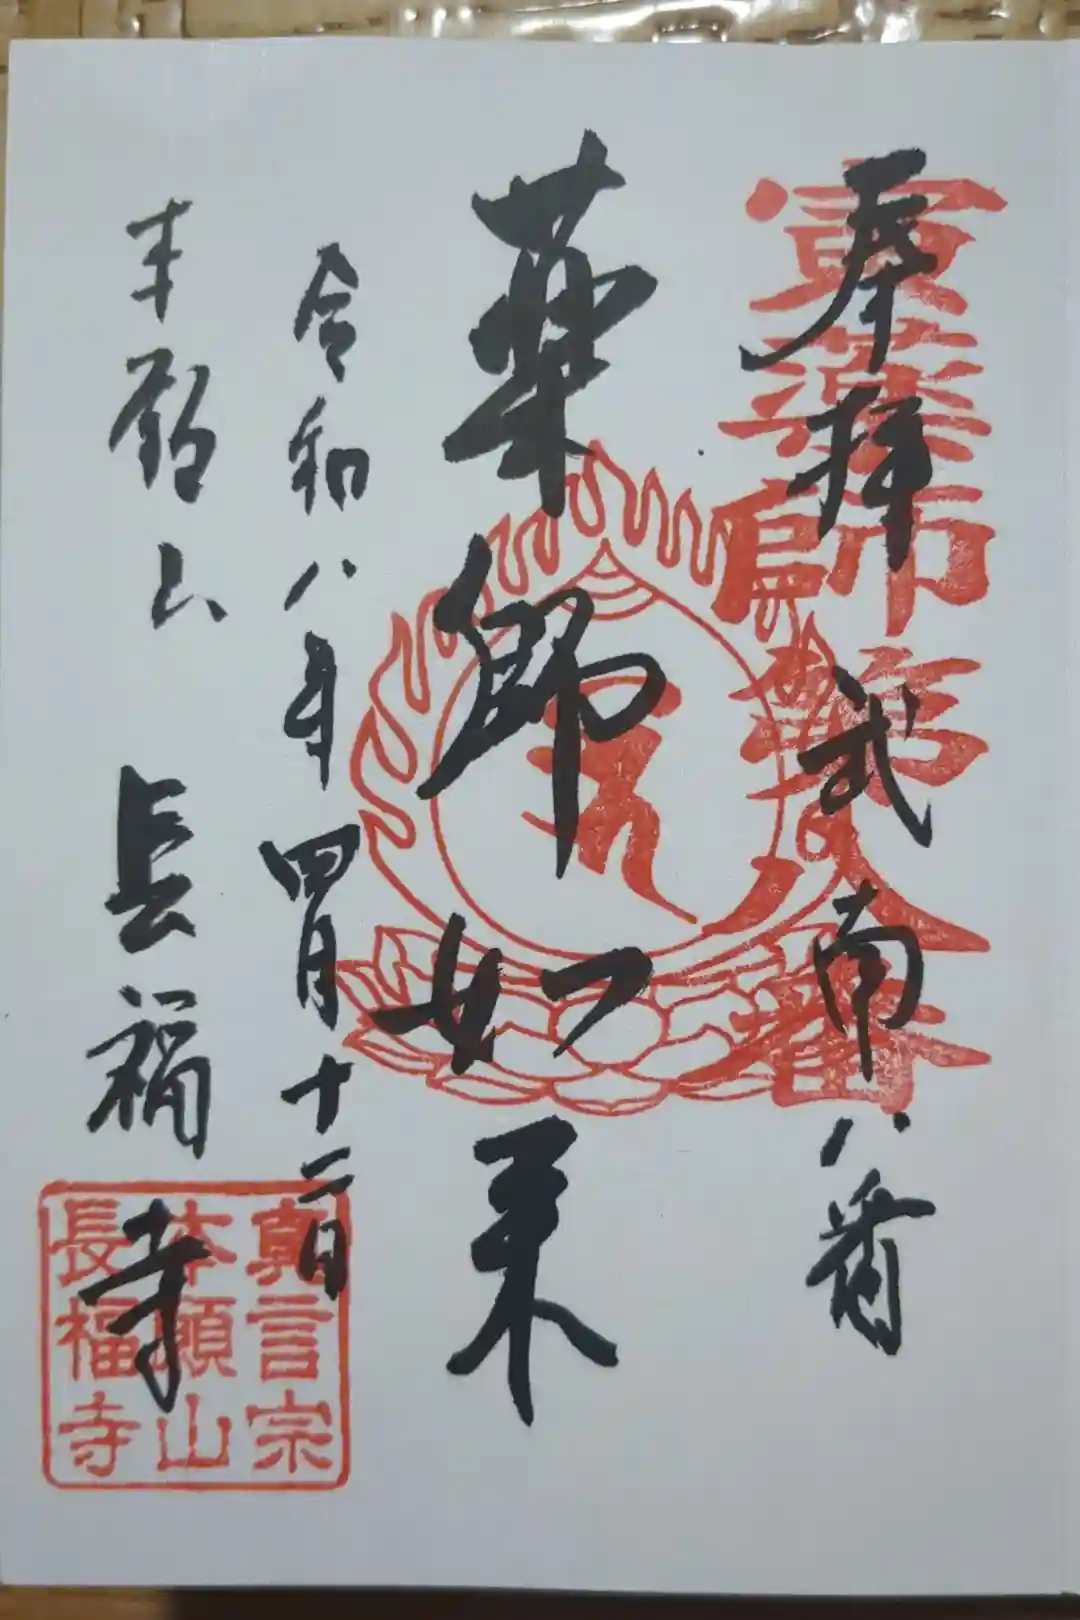 奉拝 武南八番
寅薬師 八番
薬師如来
令和八年四月十二日
本願山 長福寺
眞言宗
本願山
長福寺